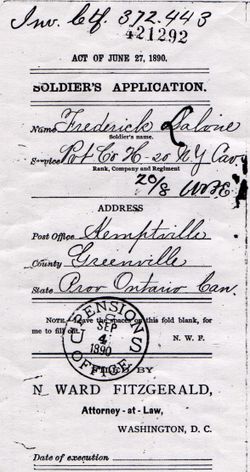 Inv. Ctf. 372.443
421292
ACT OF JUNE 27, 1890.
SOLDIER'S APPLICATION.
Name Frederick Lalone
Soldier's name.
Service Pvt Co H - 20 NY Cav
Rank, Company and Regiment
20/8
ADDRESS
Post Office Kemptville
County Greenville
State Prov Ontario Can.
NOTE.—Leave the spaces on this fold blank, for
me to fill out.
N. W. F.
U.S. PENSION OFFICE
SEP
4
1890
FILED BY
N WARD FITZGERALD,
Attorney-at-Law,
WASHINGTON, D. C.
Date of execution